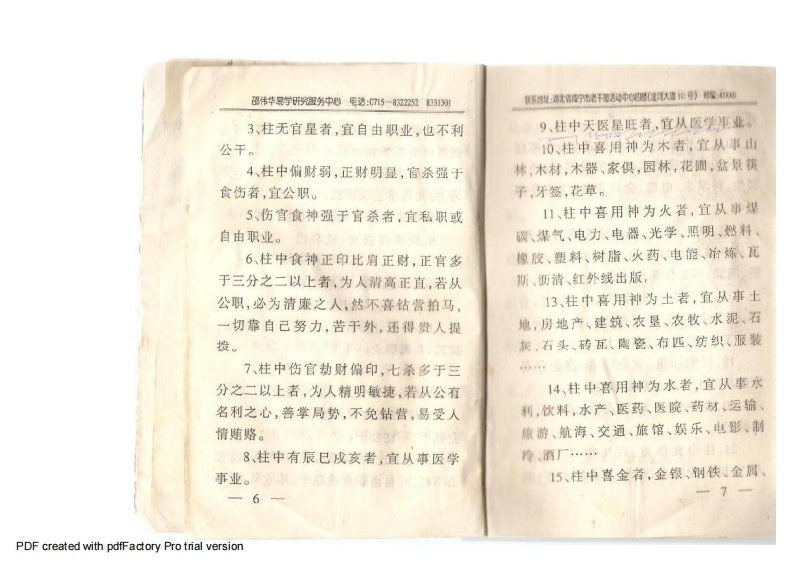 邵伟华易学研究服务中心 电话:0715—8322252 8331301
3、柱无官星者,宜自由职业,也不利
公干。
4、柱中偏财弱,正财明显,官杀强于
食伤者,宜公职。
5、伤官食神强于官杀者,宜私职或
自由职业。
6、柱中食神正印比肩正财,正官多
于三分之二以上者,为人清高正直,若从
公职,必为清廉之人,然不喜钻营拍马,
一切靠自己努力,苦干外,还得贵人提
拨。
7、柱中伤官劫财偏印,七杀多于三
分之二以上者,为人精明敏捷,若从公有
名利之心,善掌局势,不免钻营,易受人
情贿赂。
8、柱中有辰巳戌亥者,宜从事医学
事业。
— 6 —
联系地址:湖北省咸宁市老干部活动中心四楼(淦河大道111号) 邮编:437000
9、柱中天医星旺者,宜从医学事业。
10、柱中喜用神为木者,宜从事山
林,木材,木器、家俱,园林,花圃,盆景筷
子,牙签,花草。
11、柱中喜用神为火者,宜从事煤
碳、煤气、电力、电器、光学、照明、燃料、
橡胶、塑料、树脂、火药、电能、冶炼、瓦
斯、沥清、红外线出版,
13、柱中喜用神为土者,宜从事土
地,房地产、建筑、农垦、农牧、水泥、石
灰、石头、砖瓦、陶瓷、布匹、纺织、服装
……
14、柱中喜用神为水者,宜从事水
利,饮料,水产、医药、医院、药材、运输、
旅游、航海、交通、旅馆、娱乐、电影、制
冷、酒厂……
15、柱中喜金者,金银、钢铁、金属、
— 7 —
PDF created with pdfFactory Pro trial version